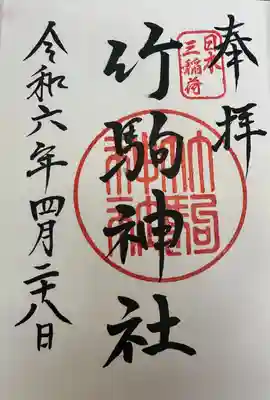 奉拝
日本
三稲荷
竹駒神社
竹駒神社
令和六年四月二十八日